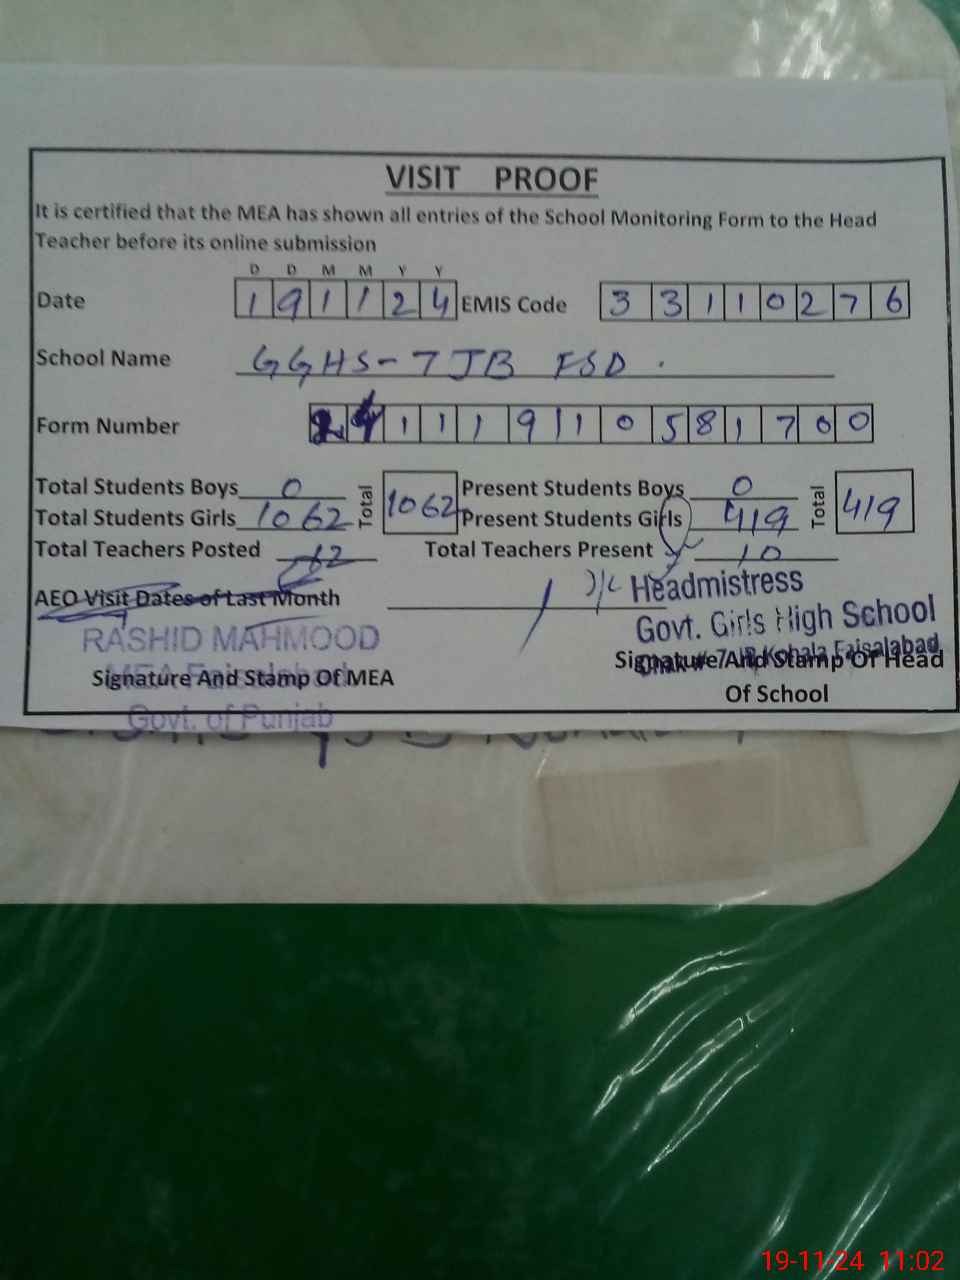 VISIT PROOF
It is certified that the MEA has shown all entries of the School Monitoring Form to the Head
Teacher before its online submission
D D M M Y Y
Date 1 9 1 1 2 4 EMIS Code 3 3 1 1 0 2 7 6
School Name GGHS-7JB FSD.
Form Number 2 4 1 1 1 9 1 1 0 5 8 1 7 0 0
Total Students Boys 0 Total 1062 Present Students Boys 0 Total 419
Total Students Girls 1062 Present Students Girls 419
Total Teachers Posted Total Teachers Present 10
AEO Visit Dates of Last Month
I/C Headmistress
Govt. Girls High School
Chak # 7 JB Kohala Faisalabad
RASHID MAHMOOD
MEA Faisalabad
Govt. of Punjab
Signature And Stamp Of MEA
Signature And Stamp Of Head
Of School
19-11-24 11:02